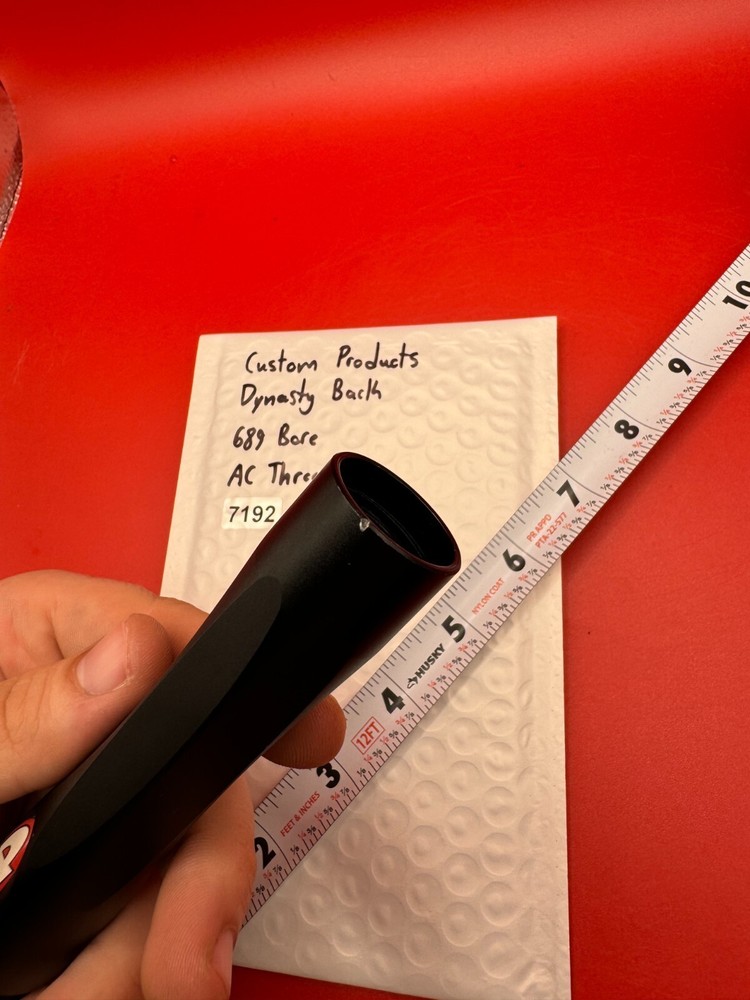 Custom Products
Dynasty Back
689 Bore
AC
7192
10
9
8
7
PR APPD
PTA-22-577
6
NYLON COAT
5
HUSKY
4
12FT
3
FEET & INCHES
2
P